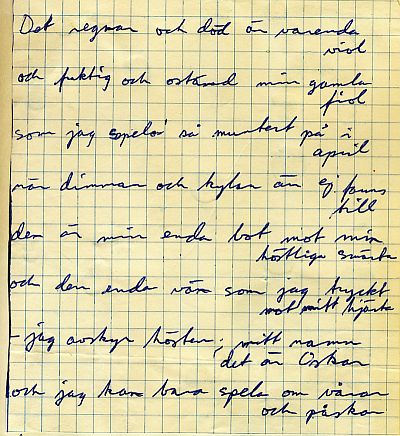 Det regnar och död är varenda
viol
och fuktig och ostämd min gamla
fiol
som jag spelar så muntert på i
april
när dimman och kylan än ej fanns
till
den är min enda bot mot min
höstliga smärta
och den enda vän som jag tryckt
mot mitt hjärta
- jag avskyr hösten; mitt namn
det är Oskar
och jag kan bara spela om vårar
och påskar